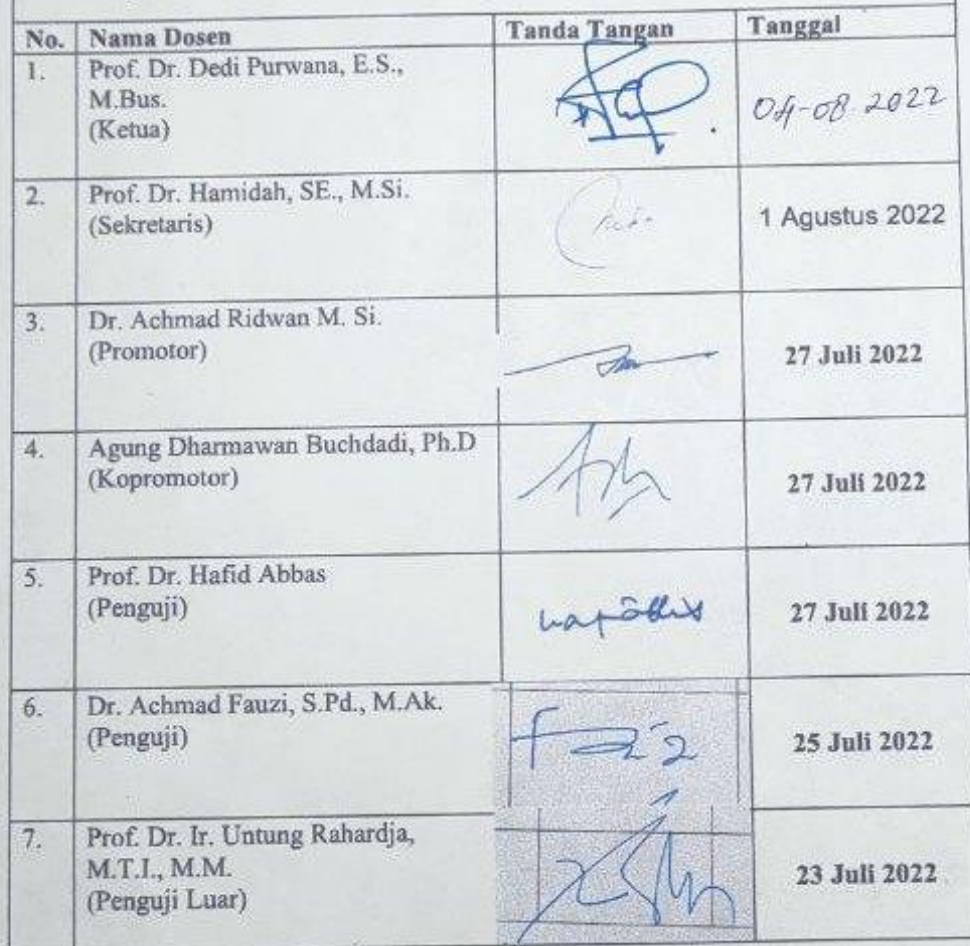 No. Nama Dosen Tanda Tangan Tanggal
1. Prof. Dr. Dedi Purwana, E.S.,
M.Bus.
(Ketua)
04-08-2022
2. Prof. Dr. Hamidah, SE., M.Si.
(Sekretaris)
1 Agustus 2022
3. Dr. Achmad Ridwan M. Si.
(Promotor)
27 Juli 2022
4. Agung Dharmawan Buchdadi, Ph.D
(Kopromotor)
27 Juli 2022
5. Prof. Dr. Hafid Abbas
(Penguji)
27 Juli 2022
6. Dr. Achmad Fauzi, S.Pd., M.Ak.
(Penguji)
25 Juli 2022
7. Prof. Dr. Ir. Untung Rahardja,
M.T.I., M.M.
(Penguji Luar)
23 Juli 2022